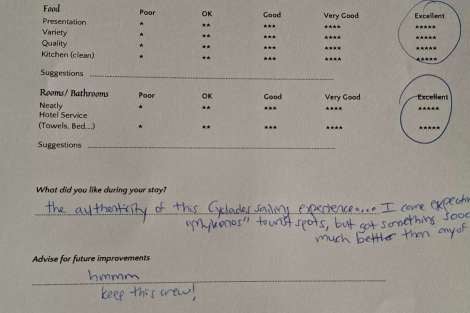 Food Poor OK Good Very Good Excellent
Presentation * ** *** **** *****
Variety * ** *** **** *****
Quality * ** *** **** *****
Kitchen (clean) * ** *** **** *****
Suggestions
Rooms/ Bathrooms Poor OK Good Very Good Excellent
Neatly * ** *** **** *****
Hotel Service
(Towels, Bed...) * ** *** **** *****
Suggestions
What did you like during your stay?
the authenticity of this Cyclades sailing experience.... I came
"mykonos" tourist spots, but got something
much better than any of
Advise for future improvements
hmmm
keep this crew!